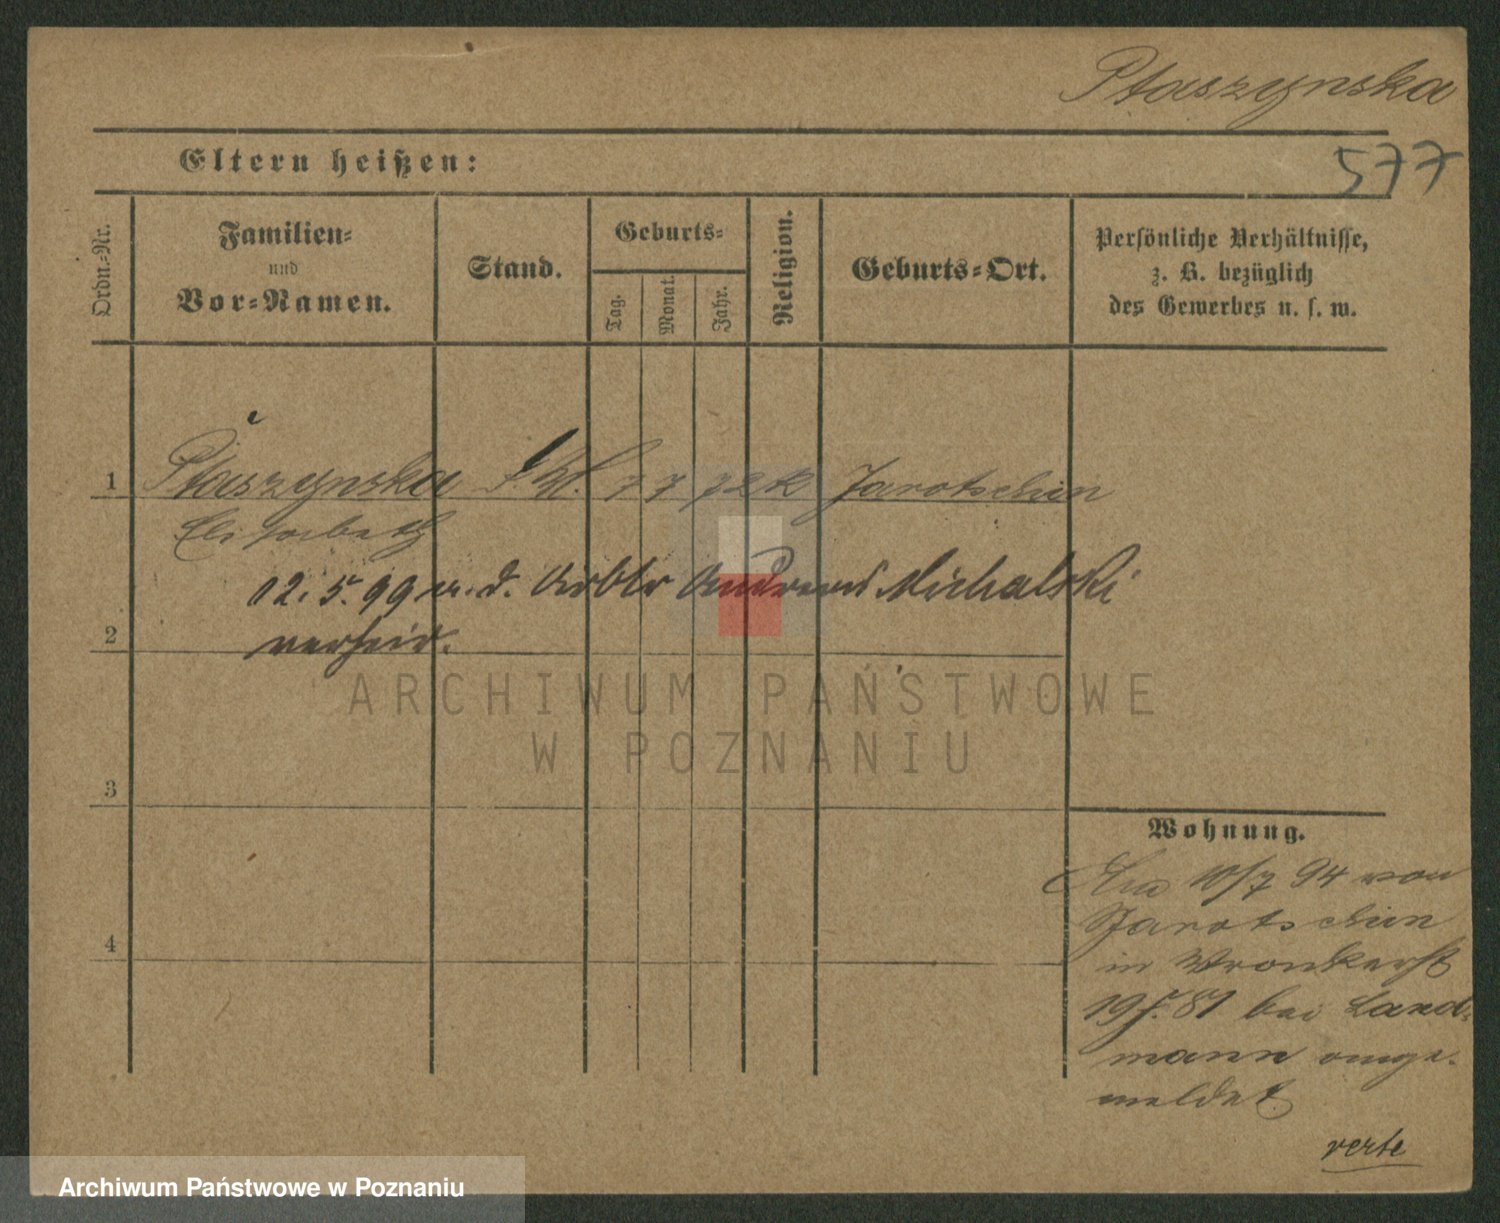 Ptaszynska
577
Eltern heißen:
Ordn.-Nr.
Familien-
und
Vor-Namen.
Stand.
Geburts-
Tag.
Monat.
Jahr.
Religion.
Geburts-Ort.
Persönliche Verhältnisse,
z. B. bezüglich
des Gewerbes u. s. w.
1 Ptaszynska 7 7 72 k Jarotschin
Elisabeth
12. 5. 99 m. d. Arbtr Andreas Michalski
2 verheir.
ARCHIWUM PAŃSTWOWE
W POZNANIU
3
Wohnung.
10/7 94 von
Jarotschin
4
in Wronkerst
19 bei Land-
mann ange-
meldet
verte
Archiwum Państwowe w Poznaniu